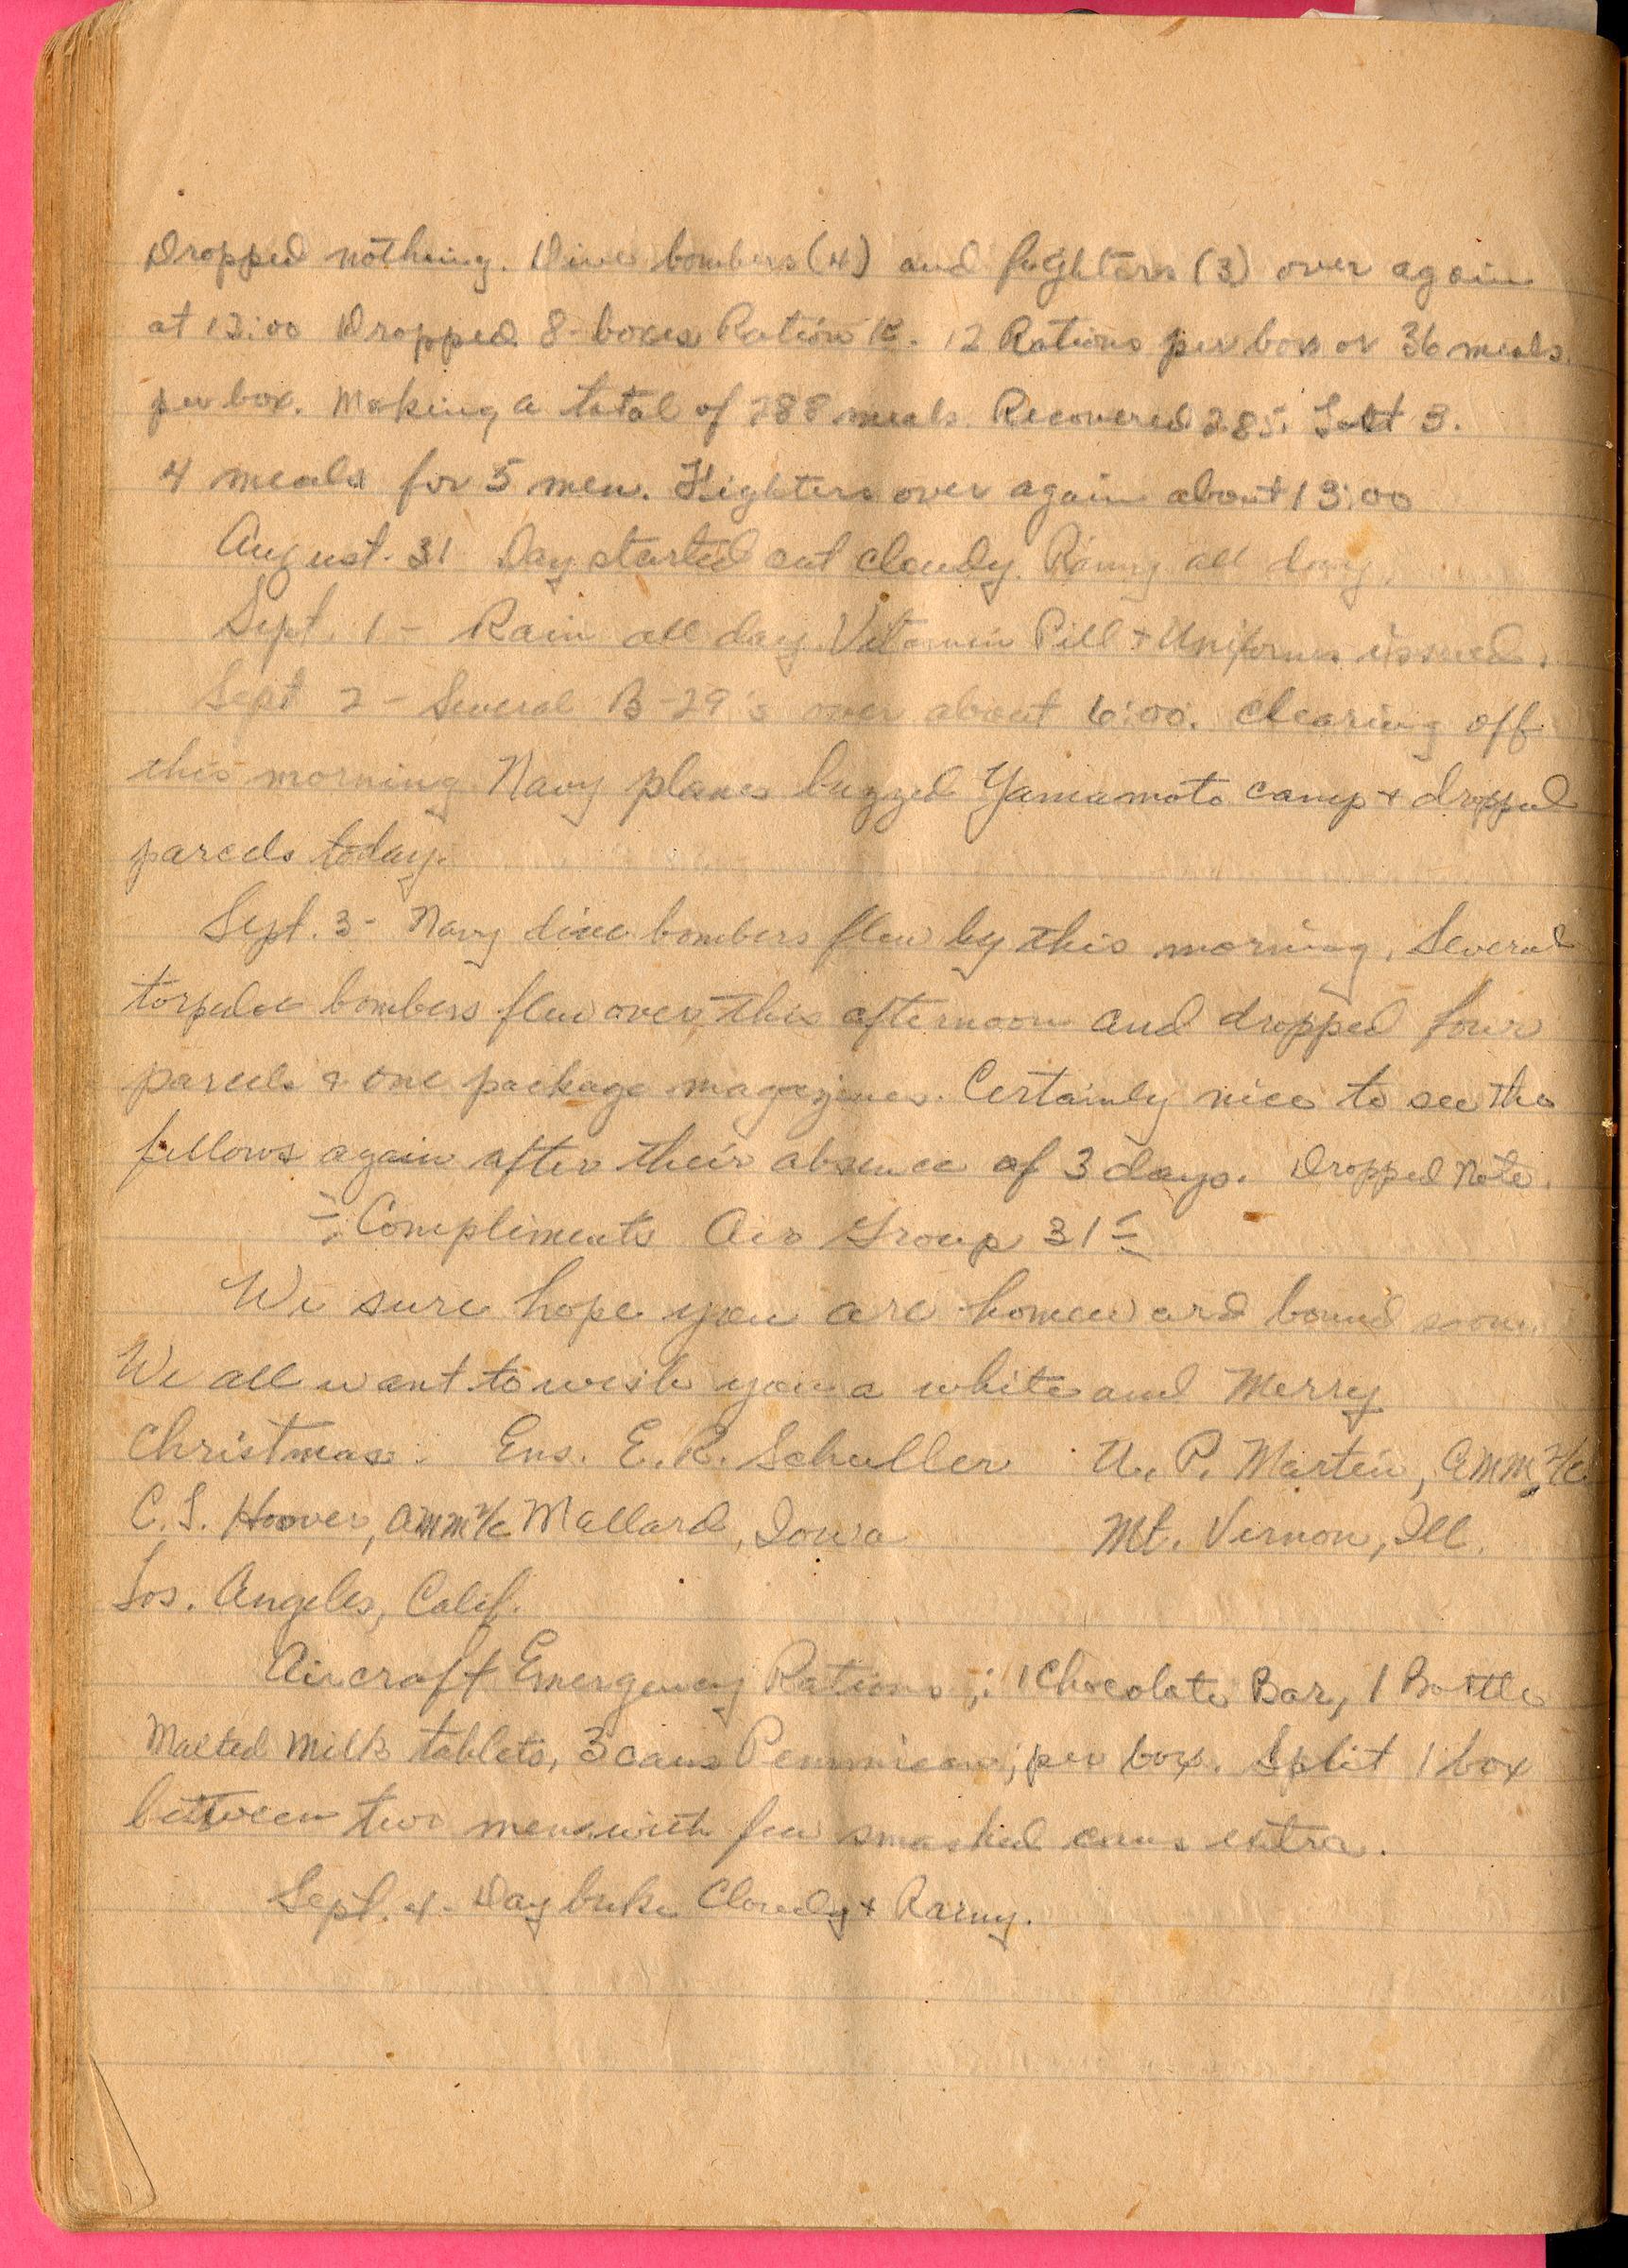 Dropped nothing. Dive bombers (4) and fighters (3) over again
at 12:00 Dropped 8-boxes Ration K. 12 Rations per box or 36 meals
per box. Making a total of 288 meals. Recovered 285. Lost 3.
4 meals for 5 men. Fighters over again about 13:00
August. 31 Day started out cloudy. Rainy all day.
Sept. 1 - Rain all day. Vitamin Pill + Uniforms issued.
Sept 2 - Several B-29's over about 6:00. Clearing off
this morning. Navy planes buzzed Yamamoto camp + dropped
parcels today.
Sept. 3 - Navy dive bombers flew by this morning. Several
torpedoe bombers flew over this afternoon and dropped four
parcels & one package magazines. Certainly nice to see the
fellows again after their absence of 3 days. Dropped Note.
Compliments Air Group 31
We sure hope you are homeward bound soon.
We all want to wish you a white and Merry
Christmas. Ens. E. R. Schuller U. P. Martin, AMM 2/c
C. S. Hoover, AMM 2/c Mallard, Iowa Mt. Vernon, Ill.
Los. Angeles, Calif.
Aircraft Emergency Rations; 1 Chocolate Bar, 1 Bottle
Malted Milk tablets, 3 cans Pemmican; per box. Split 1 box
between two men with few smashed cans extra.
Sept. 4 - Day broke Cloudy + Rainy.